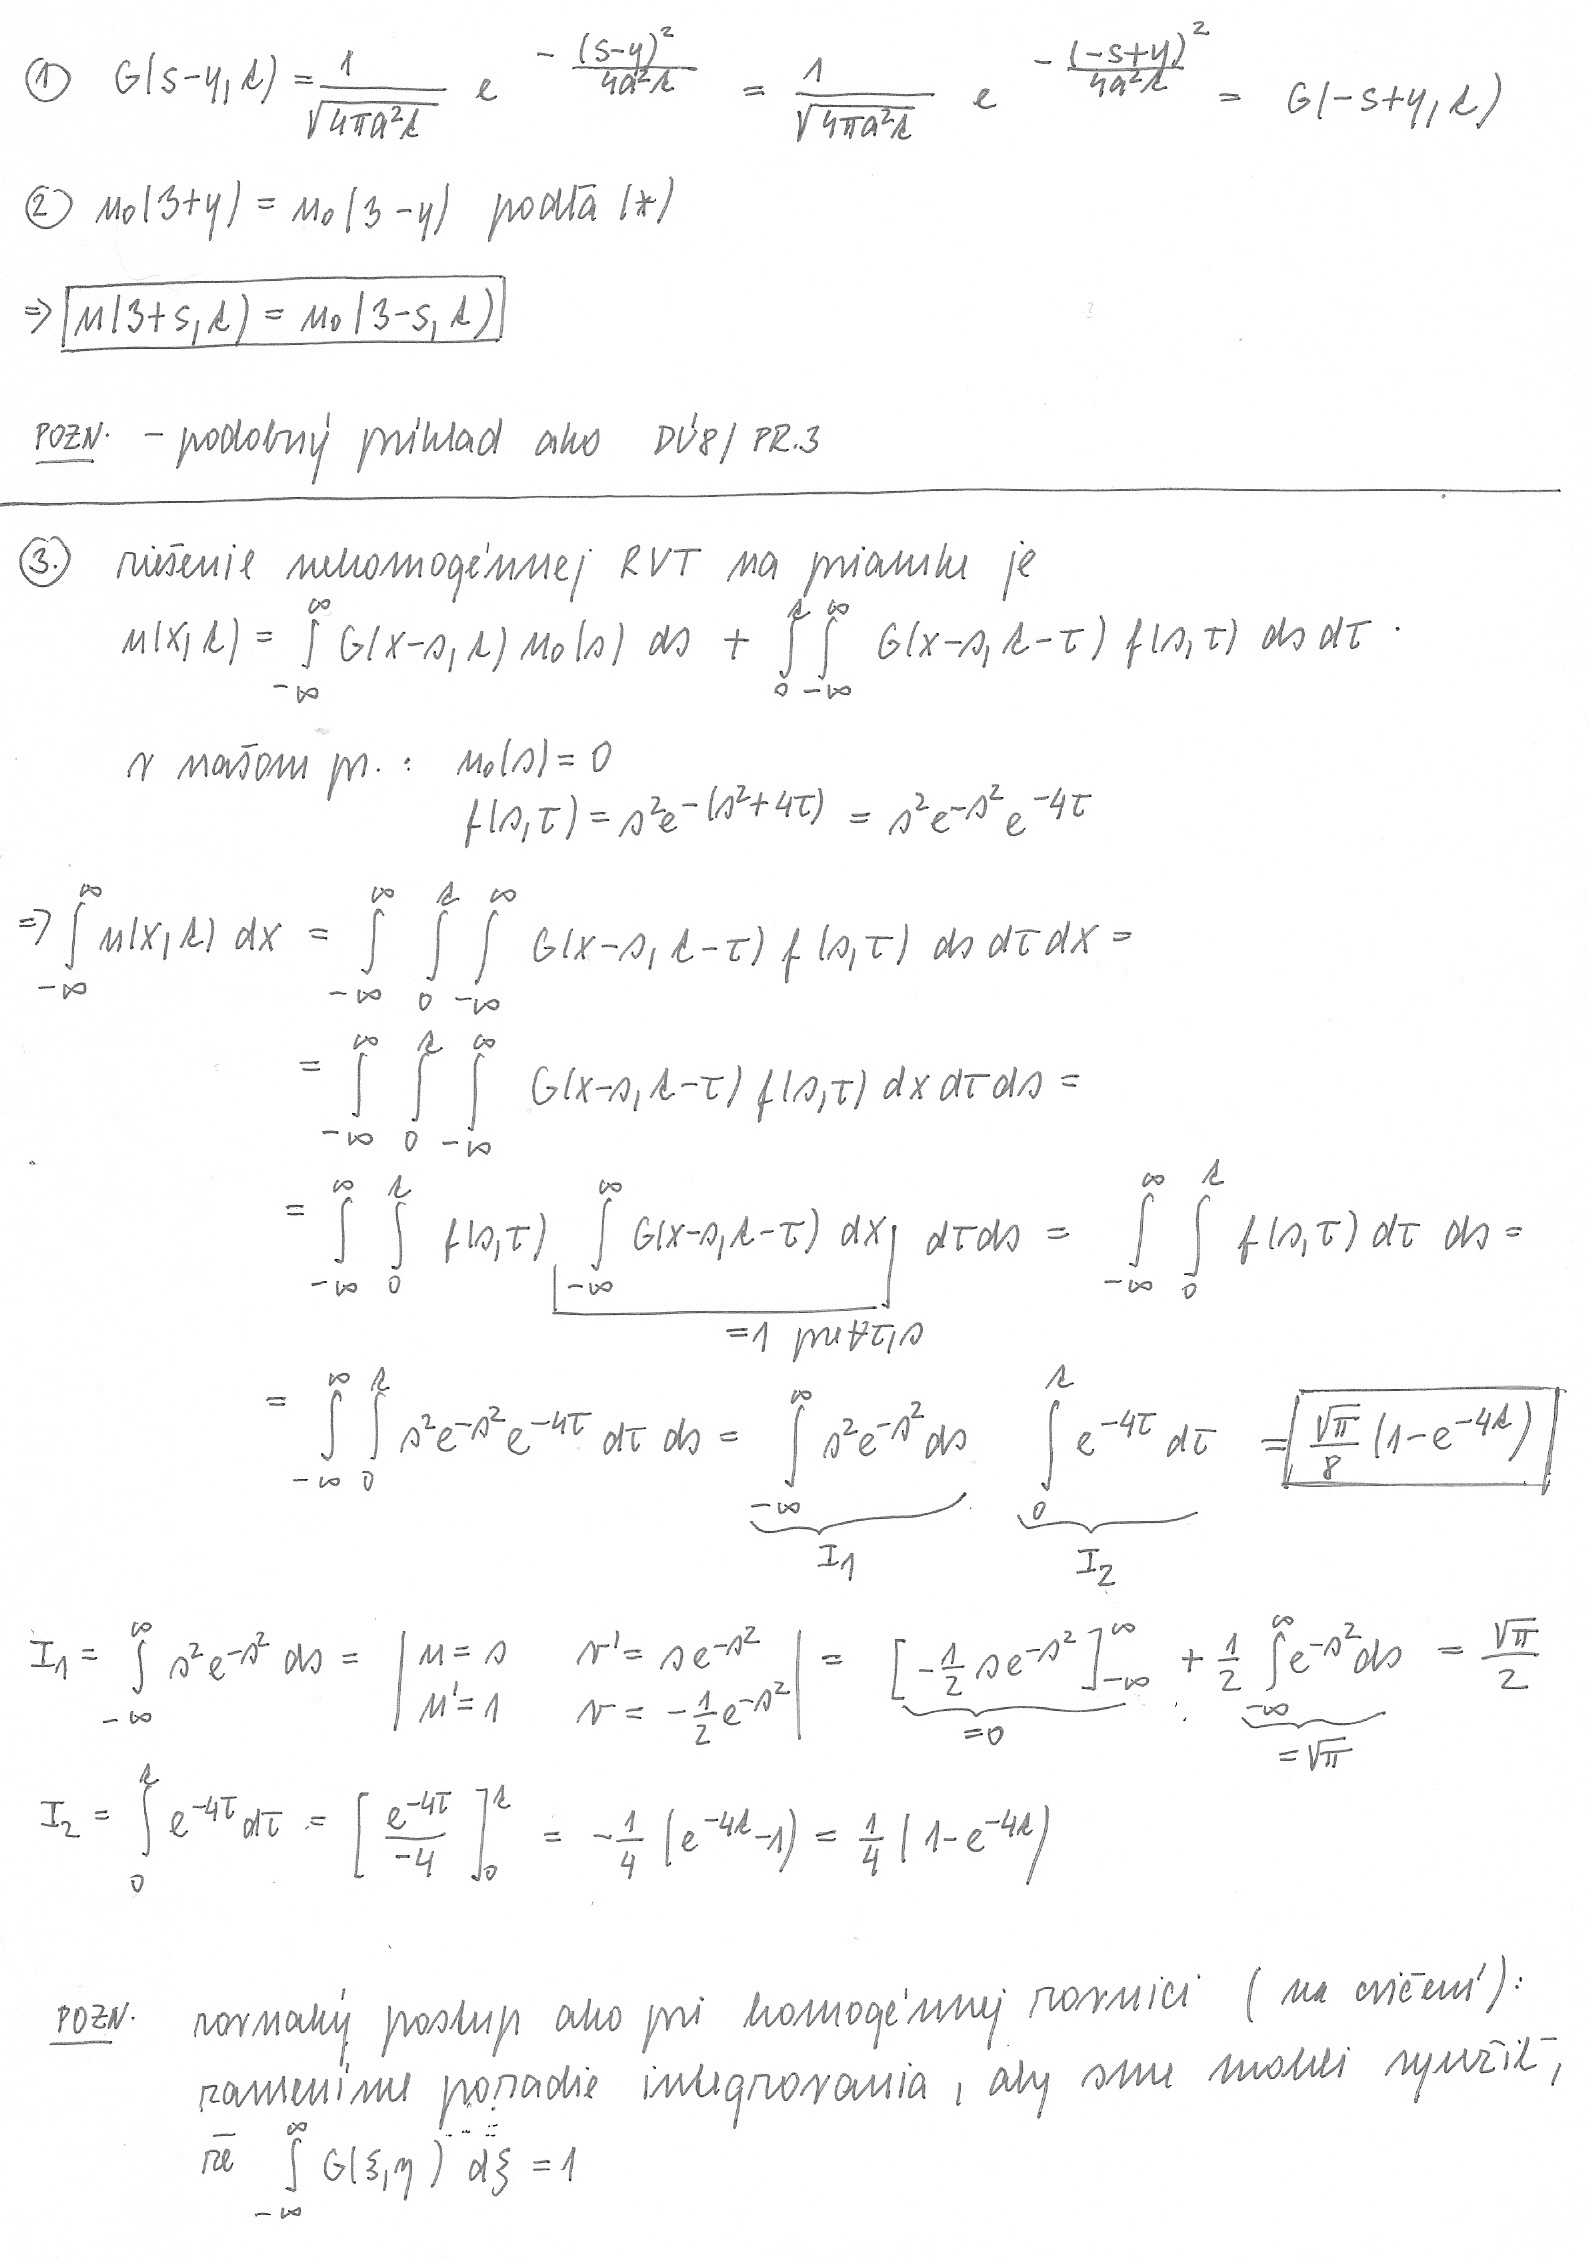 ① G(s-y,t) = \frac{1}{\sqrt{4πa²t}} e^{-\frac{(s-y)²}{4a²t}} = \frac{1}{\sqrt{4πa²t}} e^{-\frac{(-s+y)²}{4a²t}} = G(-s+y,t)
② u₀(3+y) = u₀(3-y) podľa (*)
⇒ u(3+s,t) = u₀(3-s,t)
POZN. - podobný príklad ako DÚ8/PR.3
③. riešenie nehomogénnej RVT na priamke je
u(x,t) = ∫_{-∞}^{∞} G(x-s,t) u₀(s) ds + ∫_0^t ∫_{-∞}^{∞} G(x-s,t-τ) f(s,τ) ds dτ.
v našom pr.: u₀(s) = 0
f(s,τ) = s²e^{-(s²+4τ)} = s²e^{-s²}e^{-4τ}
⇒ ∫_{-∞}^{∞} u(x,t) dx = ∫_{-∞}^{∞} ∫_0^t ∫_{-∞}^{∞} G(x-s,t-τ) f(s,τ) ds dτ dx =
= ∫_{-∞}^{∞} ∫_0^t ∫_{-∞}^{∞} G(x-s,t-τ) f(s,τ) dx dτ ds =
= ∫_{-∞}^{∞} ∫_0^t f(s,τ) ∫_{-∞}^{∞} G(x-s,t-τ) dx dτ ds = ∫_{-∞}^{∞} ∫_0^t f(s,τ) dτ ds =
=1 pre ∀τ,s
= ∫_{-∞}^{∞} ∫_0^t s²e^{-s²}e^{-4τ} dτ ds = ∫_{-∞}^{∞} s²e^{-s²} ds ∫_0^t e^{-4τ} dτ = \frac{√π}{8} (1-e^{-4t})
I₁ I₂
I₁ = ∫_{-∞}^{∞} s²e^{-s²} ds = | u=s v'=se^{-s²} u'=1 v=-\frac{1}{2}e^{-s²} | = [-\frac{1}{2}se^{-s²}]_{-∞}^{∞} + \frac{1}{2} ∫_{-∞}^{∞} e^{-s²} ds = \frac{√π}{2}
=0 =√π
I₂ = ∫_0^t e^{-4τ} dτ = [\frac{e^{-4τ}}{-4}]_0^t = -\frac{1}{4} (e^{-4t}-1) = \frac{1}{4} (1-e^{-4t})
POZN. rovnaký postup ako pri homogénnej rovnici (na cvičení):
zameníme poradie integrovania, aby sme mohli využiť,
že ∫_{-∞}^{∞} G(ξ,η) dξ = 1